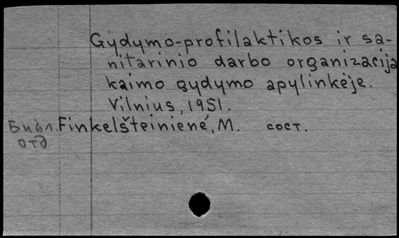 Gydymo-profilaktikos ir sa-
nitarinio darbo organizacija
kaimo gydymo apylinkėje.
Vilnius, 1951.
Библ. Finkelšteinienė, M. сост.
отд